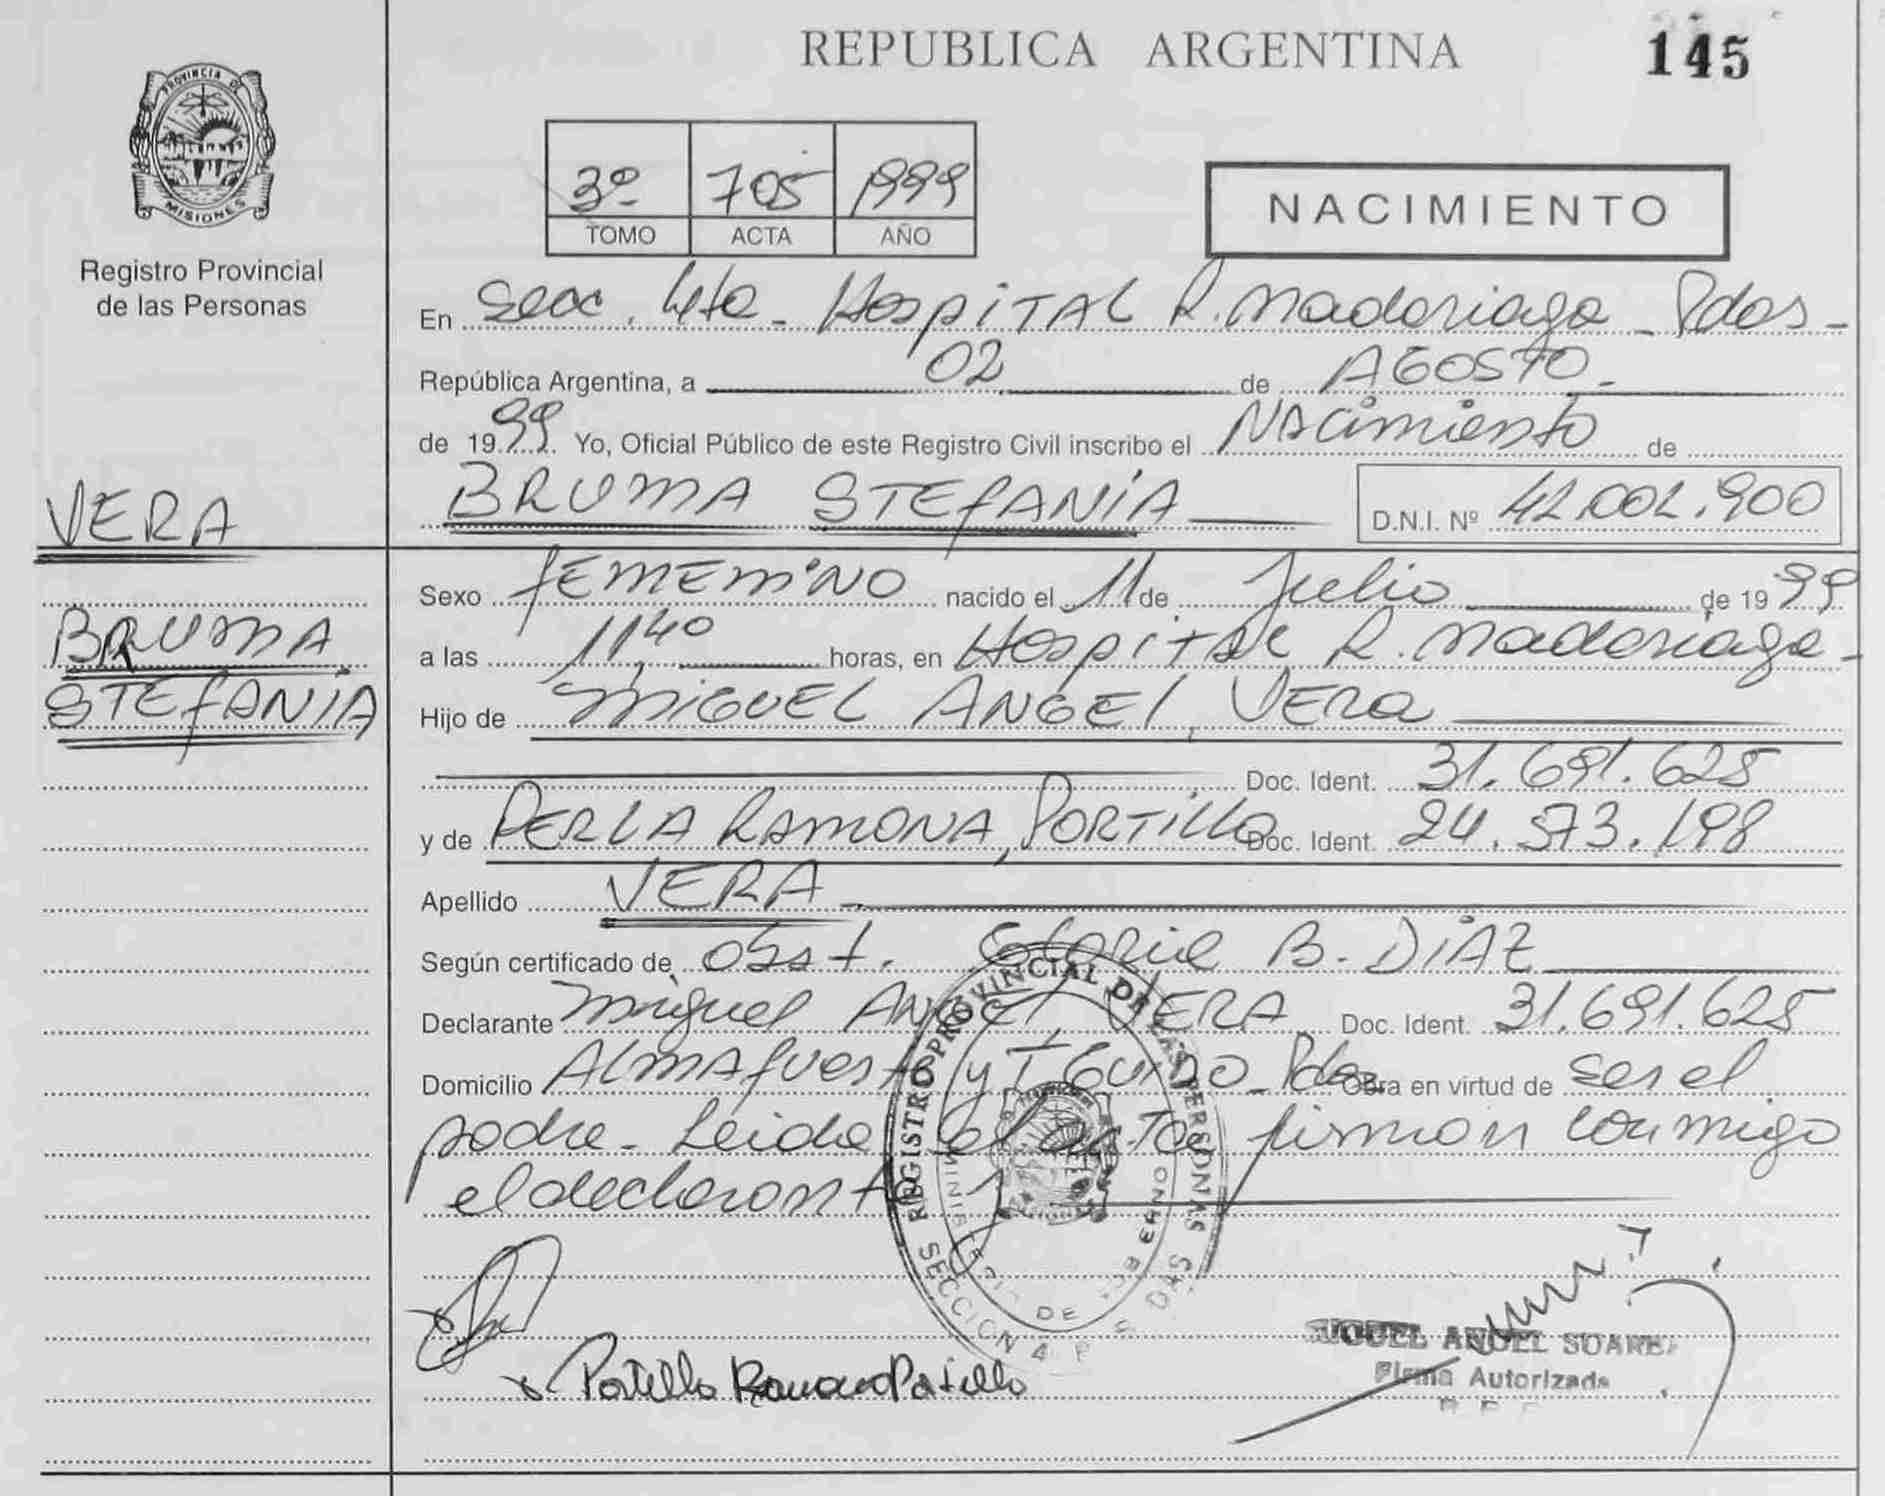 REPUBLICA ARGENTINA
145
PROVINCIA DE
MISIONES
Registro Provincial
de las Personas
3º 705 1999
TOMO ACTA AÑO
NACIMIENTO
En Secc. 4ta - Hospital R. Madariaga - Pdas -
República Argentina, a 02 de AGOSTO
de 1999. Yo, Oficial Público de este Registro Civil inscribo el Nacimiento de
VERA
BRUMA STEFANÍA D.N.I. Nº 42.002.900
BRUMA
STEFANÍA
Sexo FEMEMINO nacido el 11 de Julio de 1999
a las 11,40 horas, en Hospital R. Madariaga -
Hijo de MIGUEL ANGEL, VERA
Doc. Ident. 31.691.625
y de PERLA RAMONA, PORTILLO Doc. Ident. 24.573.198
Apellido VERA
Según certificado de Obst. B. DIAZ
Declarante Miguel ANGEL, VERA Doc. Ident. 31.691.625
Domicilio ALMAFUERTE y T. GUIDO - Pdas Obra en virtud de ser el
padre - Leída el acta firman conmigo
el declarante
REGISTRO PROVINCIAL DE LAS PERSONAS
MINISTERIO DE GOBIERNO
SECCION 4
Portillo Ramona Portillo
MIGUEL ANGEL SUAREZ
Firma Autorizada